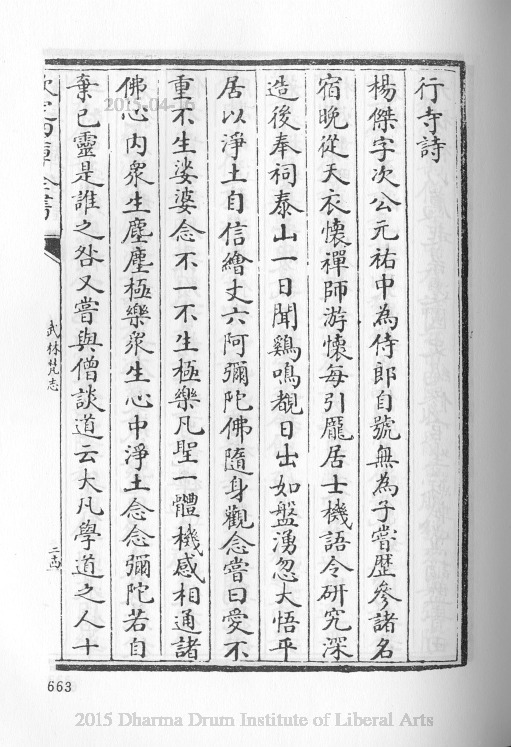 行寺詩
楊傑字次公元祐中為侍郎自號無為子嘗歷參諸名
宿晚從天衣懷禪師游懷每引龐居士機語令研究深
造後奉祠泰山一日聞鷄鳴覩日出如盤湧忽大悟平
居以淨土自信繪丈六阿彌陀佛隨身觀念嘗曰愛不
重不生娑婆念不一不生極樂凡聖一體機感相通諸
佛心內衆生塵塵極樂衆生心中淨土念念彌陀若自
棄已靈是誰之咎又嘗與僧談道云大凡學道之人十
欽定四庫全書
武林梵志
二十四
663
2015-04-16
2015 Dharma Drum Institute of Liberal Arts